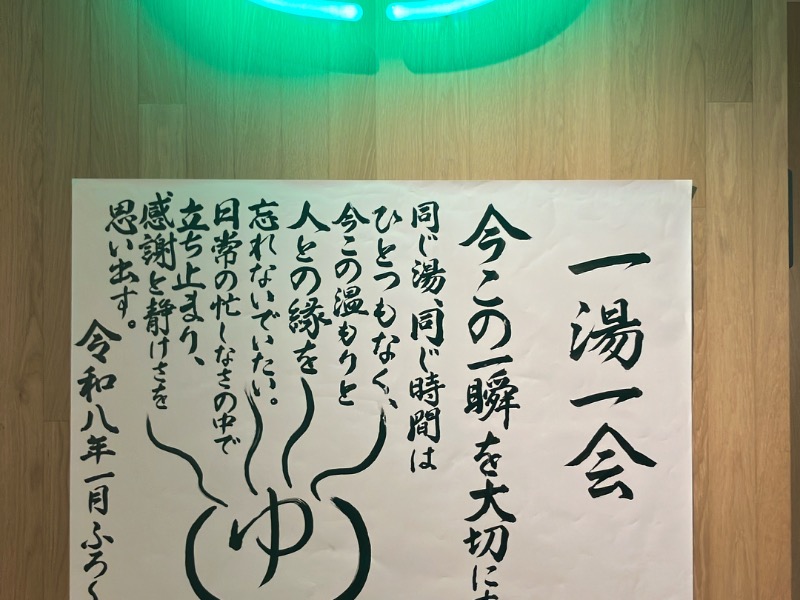 一湯一会
今この一瞬を大切に
同じ湯、同じ時間は
ひとつもなく、
今この温もりと
人との縁を
忘れないでいたい。
日常の忙しなさの中で
立ち止まり、
感謝と静けさを
思い出す。
令和八年一月ふろく
ゆ